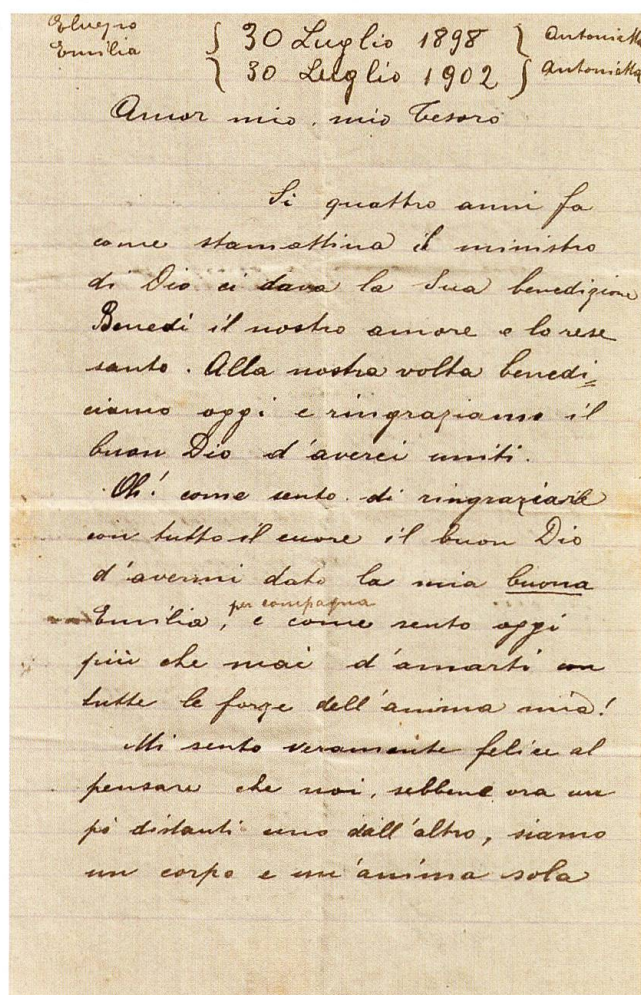 Elvezio { 30 Luglio 1898 } Antonietta
Emilia { 30 Luglio 1902 } Antonietta
Amor mio, mio Tesoro
Si quattro anni fa
come stamattina il ministro
di Dio ci dava la Sua benedizione
Benedì il nostro amore e lo rese
santo. Alla nostra volta benedi=
ciamo oggi e ringraziamo il
buon Dio d'averci uniti.
Oh! come sento di ringraziare
con tutto il cuore il buon Dio
d'avermi dato la mia buona
Emilia, per compagna e come sento oggi
più che mai d'amarti con
tutte le forze dell'anima mia!
Mi sento veramente felice al
pensare che noi, sebbene ora un
pò distanti uno dall'altro, siamo
un corpo e un'anima sola